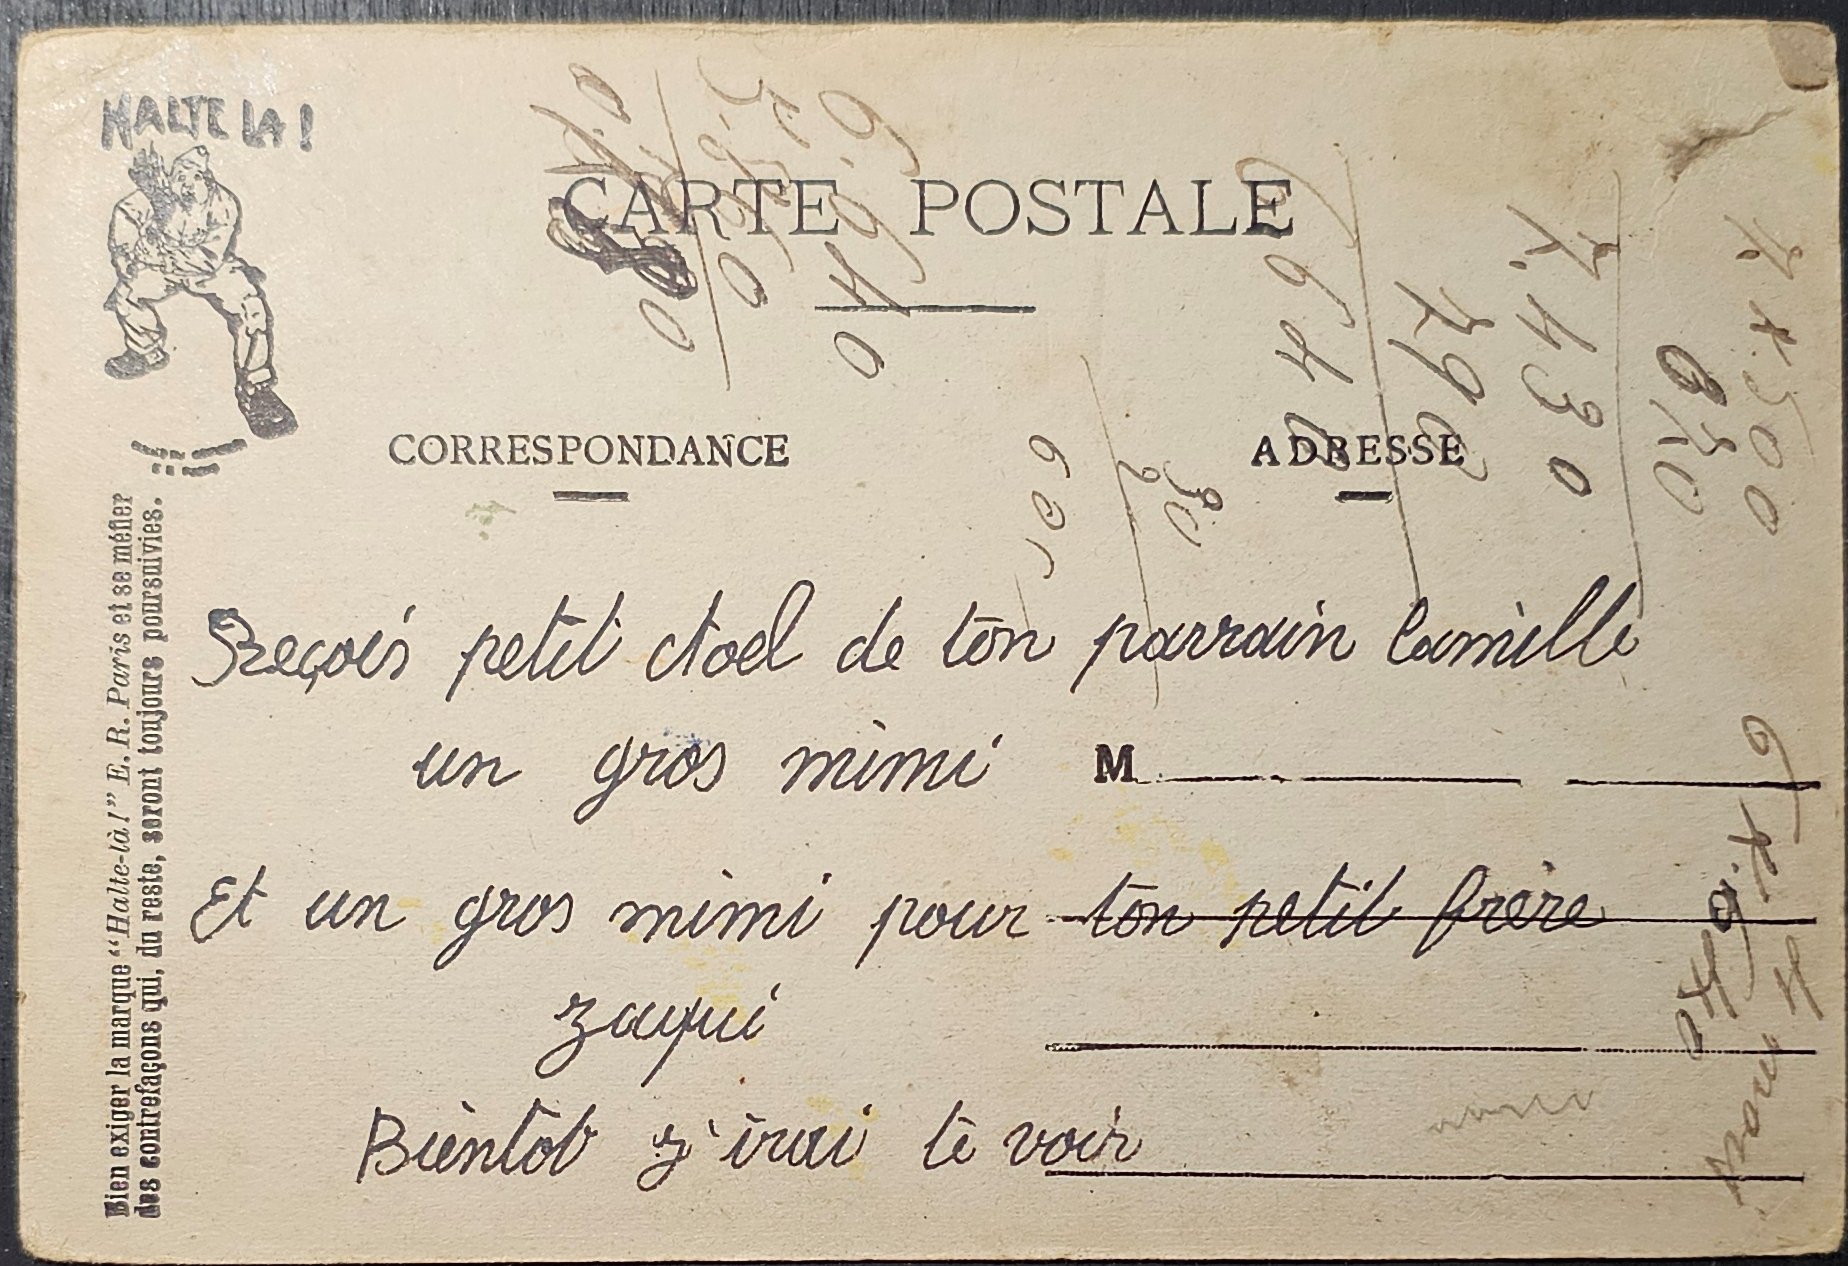 HALTE LA !
CARTE POSTALE
CORRESPONDANCE
ADRESSE
Reçois petit Noel de ton parrain Camille
un gros mimi
M
Et un gros mimi pour ton petit frère
zaqui
Bientôt z'irai te voir
Bien exiger la marque “Halte-là !” E. R. Paris et se méfier
des contrefaçons qui, du reste, seront toujours poursuivies.
6.640
640
790
7.430